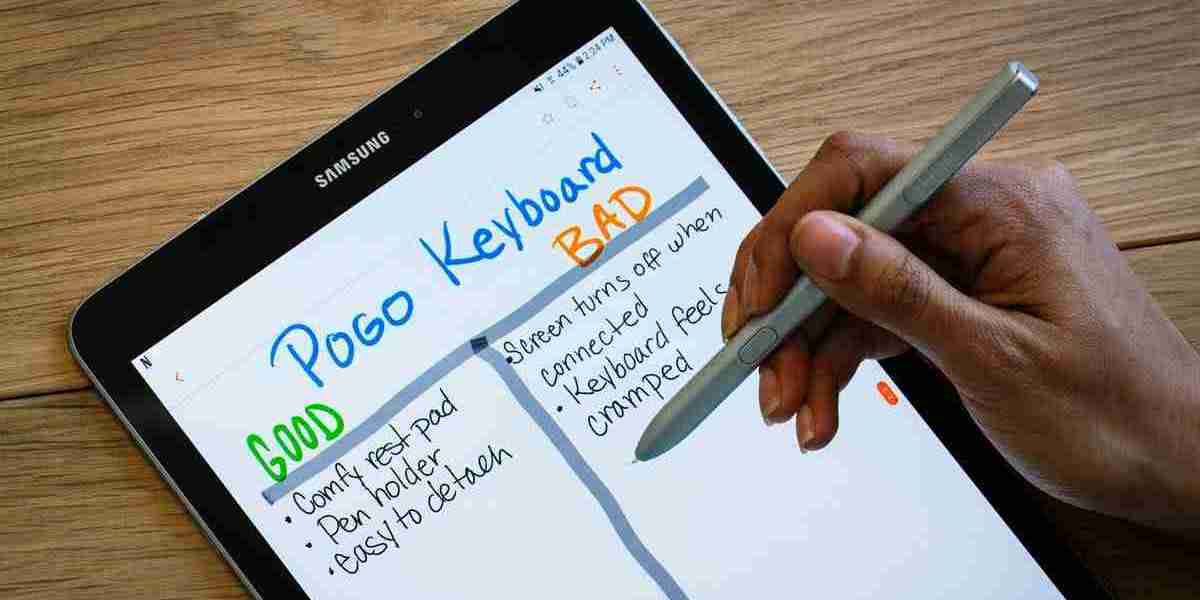 SAMSUNG
44% 2:24 PM
N
Pogo Keyboard
GOOD
• Comfy rest pad
• Pen holder
• easy to detach
BAD
• Screen turns off when
connected
• Keyboard feels
cramped